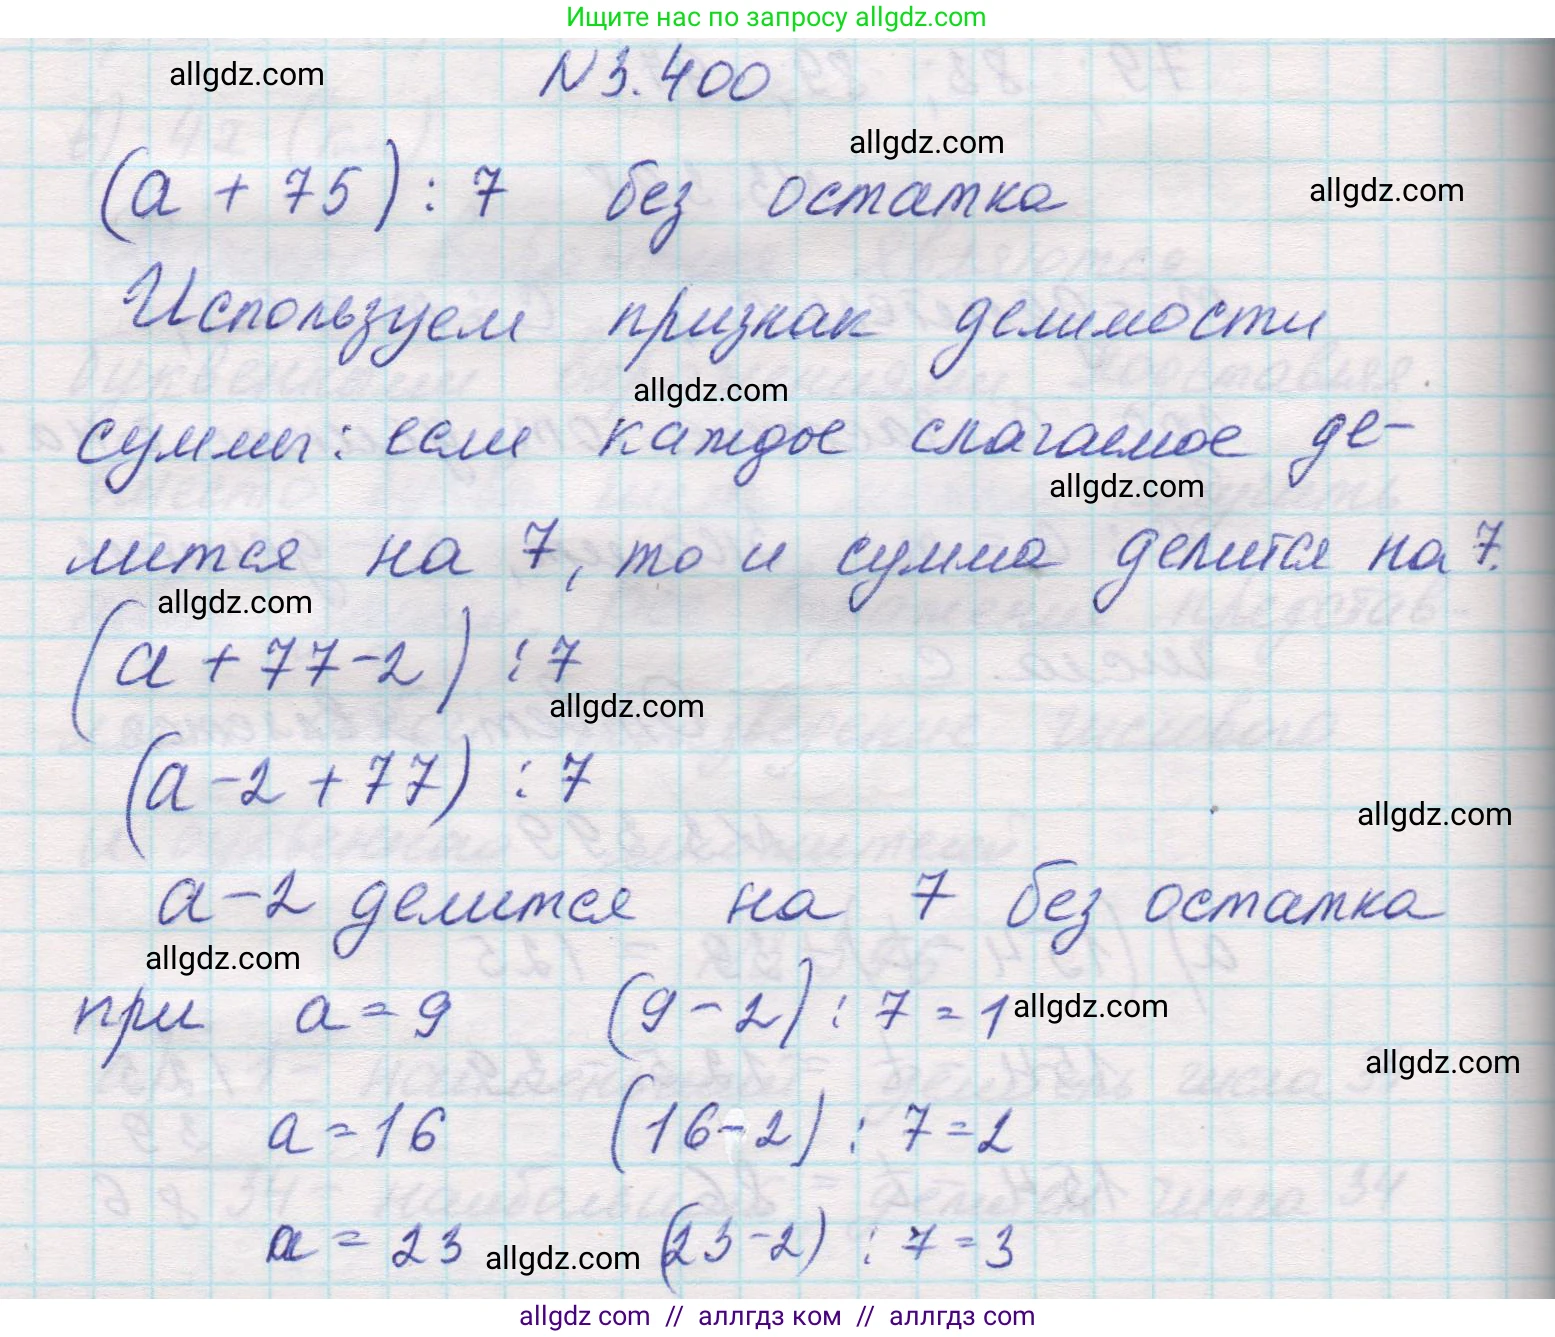 Ищите нас по запросу allgdz.com
allgdz.com
N 3.400
allgdz.com
(a + 75) : 7 без остатка
allgdz.com
Используем признак делимости
allgdz.com
суммы: если каждое слагаемое де-
allgdz.com
лится на 7, то и сумма делится на 7.
allgdz.com
(a + 77 - 2) : 7
allgdz.com
(a - 2 + 77) : 7
allgdz.com
a - 2 делится на 7 без остатка
allgdz.com
при a = 9 (9 - 2) : 7 = 1
allgdz.com
allgdz.com
a = 16 (16 - 2) : 7 = 2
a = 23 (23 - 2) : 7 = 3
allgdz.com
allgdz com // аллгдз ком // аллгдз com